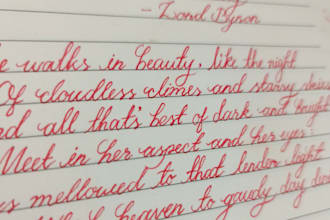 - Lord Byron
e walks in beauty, like the night
Of cloudless climes and starry skies
nd all that's best of dark and bright
Meet in her aspect and her eyes:
us mellowed to that tender light
heaven to gaudy day